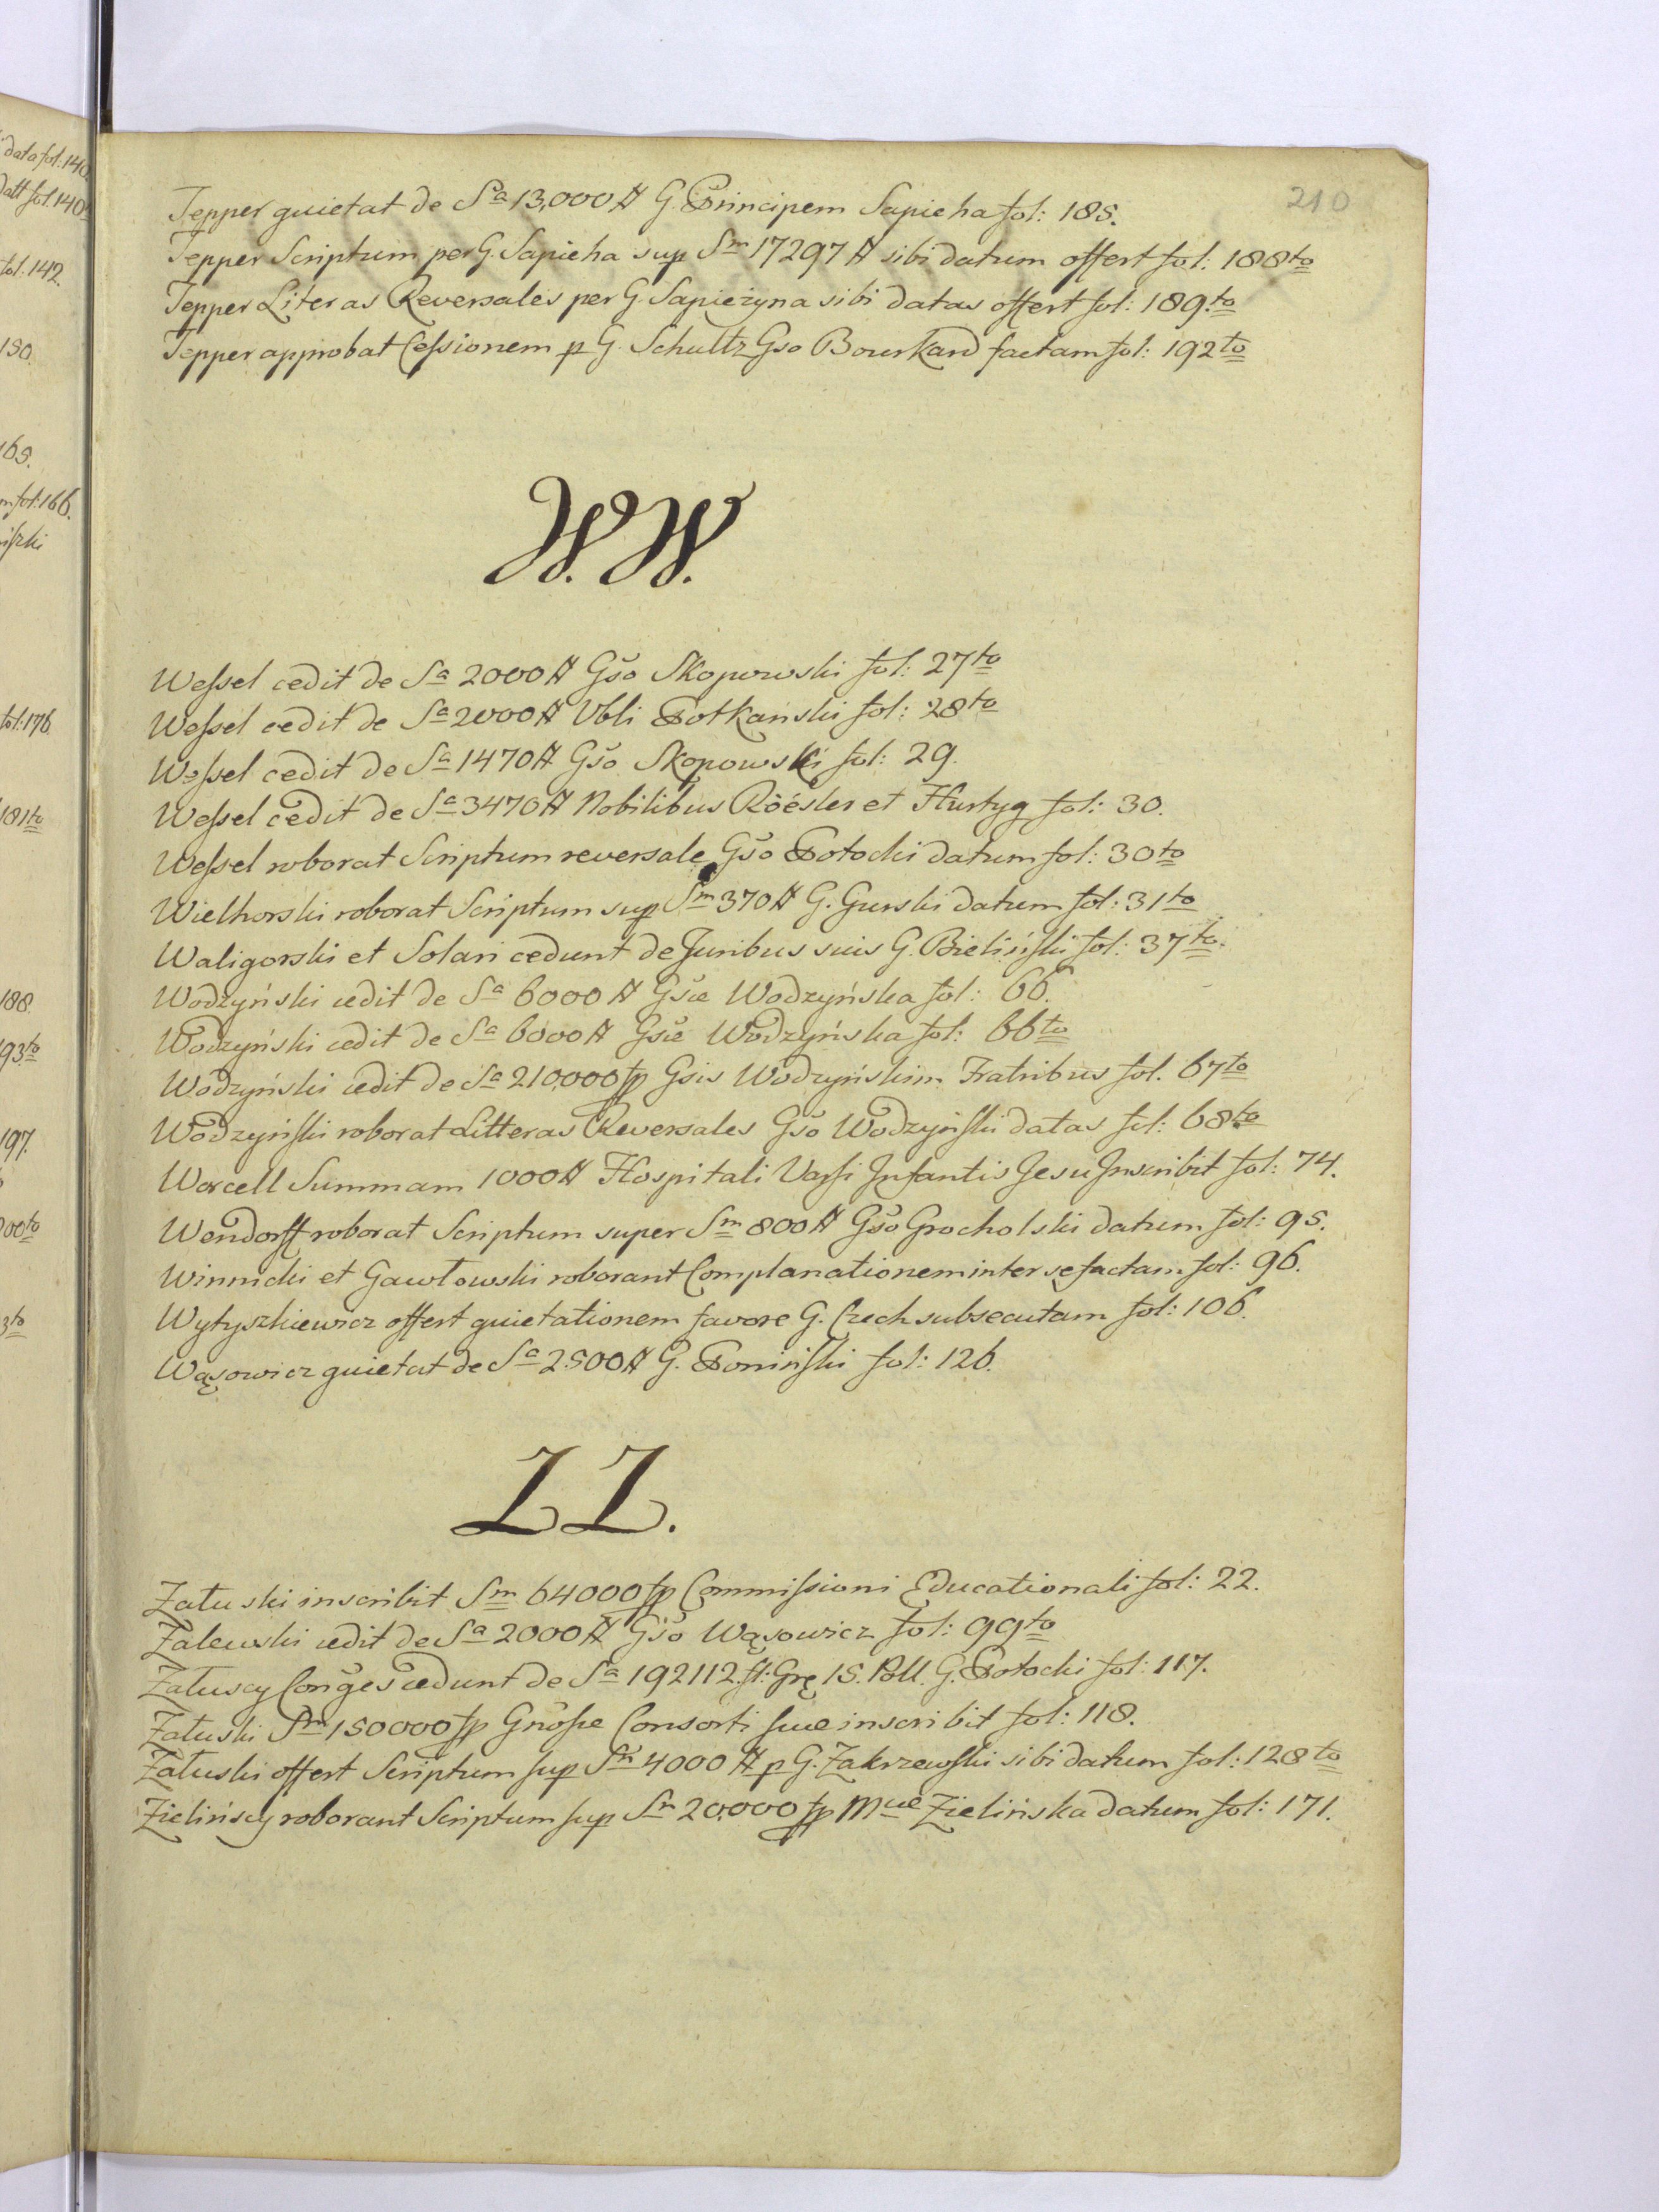 210
Tepper quietat de Sa 13,000 # G. Principem Sapieha fol: 185.
Tepper Scriptum per G. Sapieha sup Sm 17297 # sibi datum offert fol: 188to
Tepper Literas Reversales per G. Sapieżyna sibi datas offert fol: 189.to
Tepper approbat Cessionem p G. Schultz Gso Bourkard factam fol: 192to
W. W.
Wessel cedit de Sa 2000 # Gso Skopowski fol: 27to
Wessel cedit de Sa 2000 # Vbli Potkański fol: 28to
Wessel cedit de Sa 1470 # Gso Skopowski fol: 29.
Wessel cedit de Sa 3470 # Nobilibus Röésler et Hurtyg fol: 30.
Wessel roborat Scriptum reversale Gso Potocki datum fol: 30to
Wielhorski roborat Scriptum sup Sm 370 # G. Gurski datum fol: 31to
Waligorski et Solari cedunt de Juribus suis G. Bieliński fol: 37to.
Wodzyński cedit de Sa 6000 # Gsæ Wodzyńska fol: 66.
Wodzyński cedit de Sa 6000 # Gsæ Wodzyńska fol: 66to
Wodzyński cedit de Sa 210,000 fp Gsis Wodzyńskim Fratribus fol. 67to
Wodzyński roborat Litteras Reversales Gso Wodzyński datas fol: 68to
Worcell Summam 1000 # Hospitali Varsi Infantis Jesu Inscribit fol: 74.
Wendorff roborat Scriptum super Sm 800 # Gso Grocholski datum fol: 95.
Winnicki et Gawłowski roborant Complanationem inter se factam fol: 96.
Wytyszkiewicz offert quietationem favore G. Czech subsecutam fol: 106.
Wąsowicz quietat de Sa 2500 # G. Poniński fol: 126.
Z Z.
Załuski inscribit Sm 64000 fp Commissioni Educationali fol: 22.
Zalewski cedit de Sa 2000 # Gso Wąsowicz fol: 99to
Załuscy Conges cedunt de Sa 192112. fl: Grę 15. Poll. G. Potocki fol: 117.
Załuski Sm 150000 fp Gnosæ Consorti suæ inscribit fol: 118.
Załuski offert Scriptum sup Sm 4000 # p G. Zakrzewski sibi datum fol: 128to
Zielińscy roborant Scriptum sup Sm 20,000 fp Mcæ Zielińska datum fol: 171.